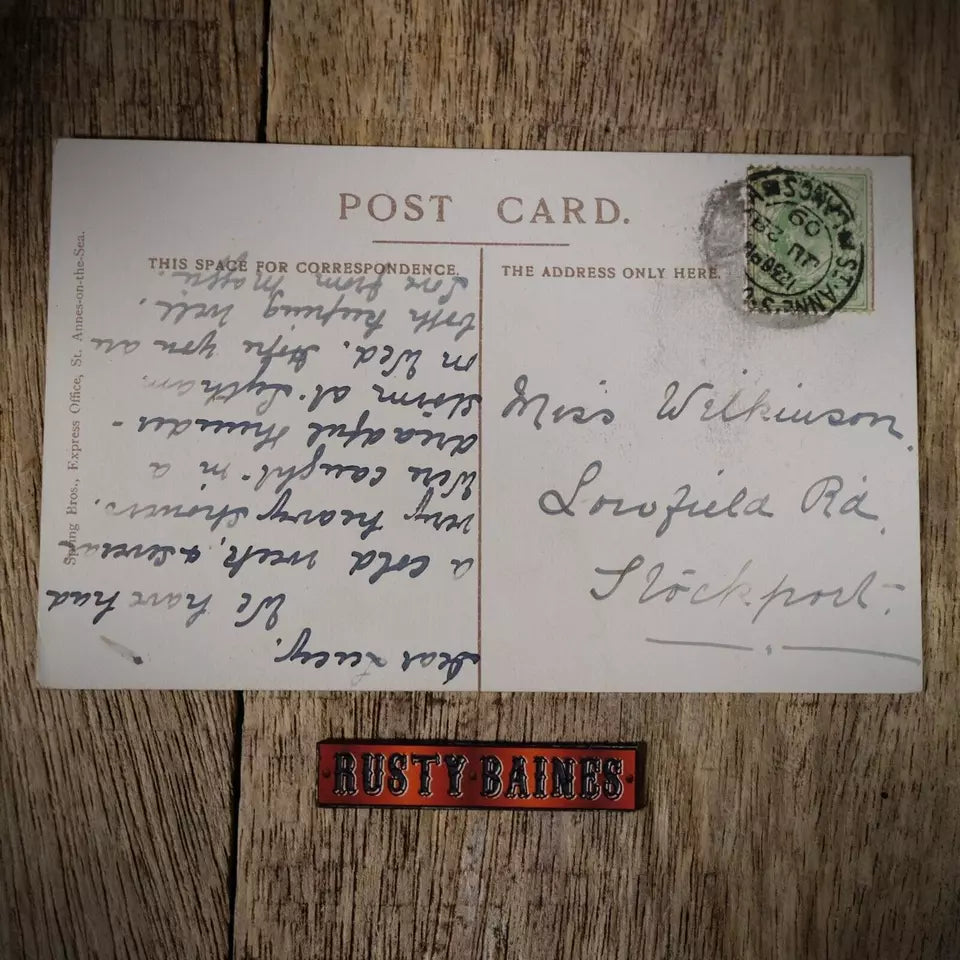 POST CARD.
THIS SPACE FOR CORRESPONDENCE.
THE ADDRESS ONLY HERE.
Spring Bros., Express Office, St. Annes-on-the-Sea.
Dear Lucy,
We have had
a cold week, & several
very heavy showers.
Were caught in a
dreadful thunder-
storm at Lytham
on Wed. Hope you are
both keeping well.
Love from
Miss Wilkinson.
Lowfield Rd.
Stockport.
ST. ANNE'S
LANCS
JU 28
09
RUSTY BAINES